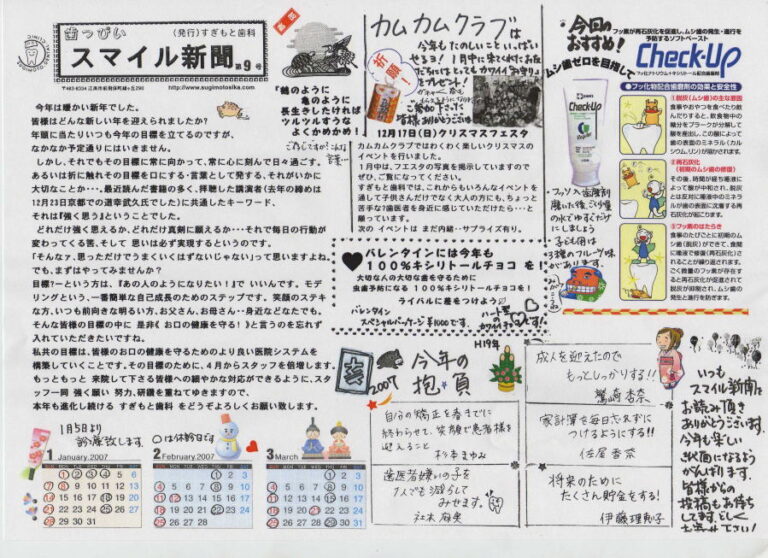 歯っぴい
スマイル新聞
(発行)すぎもと歯科
第9号
http://www.sugimotosika.com
今年は暖かい新年でした。
皆様はどんな新しい年を迎えられましたか?
年頭に当たりいつも今年の目標を立てるのですが、
なかなか予定通りにはいきません。
しかし、それでもその目標に常に向かって、常に心に刻んで日々過ごす。
あるいは折に触れその目標を口にする・言葉として発する、それがいかに
大切なことか・・・、最近読んだ書籍の多く、拝聴した講演者(去年の締めは
12月23日京都での道幸武久氏でした)に共通したキーワード、
それは『強く思う』ということでした。
どれだけ強く思えるか、どれだけ真剣に願えるか・・・それで毎日の行動が
変わってくる筈、そして 思いは必ず実現するというのです。
「そんなァ、思っただけでうまくいくはずないじゃない」って思いますよね。
でも、まずはやってみませんか?
目標?ーという方は、『あの人のようになりたい!』で いいんです。モデ
リングという、一番簡単な自己成長のためのステップです。笑顔のステキ
な方、いつも前向きな明るい方、お父さん、お母さん・・・身近などなたでも。
そんな皆様の目標の中に 是非《 お口の健康を守る! 》と言うのを忘れず
入れていただきたいですね。
私共の目標は、皆様のお口の健康を守るためのより良い医院システムを
構築していくことです。その目標のために、4月からスタッフを倍増します。
もっともっと 来院して下さる皆様への細やかな対応ができるように、スタ
ッフ一同 強く願い 努力、研鑽を重ねてゆきますので、
本年も進化し続ける すぎもと歯科 をどうぞよろしくお願い致します。
1月5日より
診療致します。
○は休診日です
1 January,2007
2 February,2007
3 March
『鶴のように
亀のように
長生きしたければ
ツルツルすうな
よくかめかめ!
カムカムクラブは
今年もたのしいこといっぱい
せるヨ!1月中に来てくれたお友
だちにはとしてもカワイイ「お守り」
をプレゼント!
祈願
12月17日(日)クリスマスフェスタ
カムカムクラブではわくわく楽しいクリスマスの
イベントを行いました。
1月中は、フエスタの写真を掲示していますので
ぜひ、ご覧になってください。
すぎもと歯科では、これからもいろんなイベントを
通して子供さんだけでなく大人の方にも、ちょっと
苦手な?歯医者を身近に感じていただけたら・・・と
願っています。
次の イベントは まだ内緒・・サプライズ有り。
バレンタインには今年も
100%キシリトールチョコ を!
大切な人の大切な歯を守るために
虫歯予防になる 100%キシリトールチョコで
ライバルに差をつけよう
バレンタイン
スペシャルパッケージ
ハート型の
今回の
おすすめ!
フッ素が再石灰化を促進し、ムシ歯の発生・進行を
予防するソフトペースト
Check-Up
フッ化ナトリウム+キシリトール配合歯磨剤
ムシ歯ゼロを目指して
Check-Up
フッ化物配合歯磨剤の効果と安全性
①脱灰(ムシ歯)の主な原因
食事やおやつを食べたり飲
んだりすると、飲食物中の
糖分をプラークが分解して
酸を産出し、この酸によって
歯の表面のミネラル(カル
シウム、リン)が溶かされます。
②再石灰化
(初期のムシ歯の修復)
その後、時間が経ち唾液によ
って酸が中和され、脱灰
とは反対に唾液中のミネラ
ルが歯の表面に沈着する再
石灰化が起こります。
③フッ素のはたらき
食事のたびごとに初期のムシ
歯(脱灰)ができて、食間
に唾液で修復(再石灰化)さ
れることが繰り返されます。
ごく微量のフッ素が存在す
ると再石灰化が促進されて
脱灰が抑制され、ムシ歯の
発生と進行を防ぎます。
フッソ入歯磨剤
磨いた後、ごく少量
の水でゆすぐだけ
にしましょう
子ども用は
3種のフルーツ味
があります。
2007
今年の
抱負
H19年
自分の矯正を春までに
終わらせて、笑顔で患者様を
迎えること
杉本まゆみ
歯医者嫌いの子を
1人でも減らして
みせます。
社本麻美
成人を迎えたので
もっとしっかりする!!
鷲崎杏奈
家計簿を毎日忘れずに
つけるようにする!!
佐尾香奈
将来のために
たくさん貯金をする!
伊藤理勢子
いつも
スマイル新聞を
お読み頂き
ありがとうございます。
今年も楽しい
紙面になるよう
がんばります。
皆様からの
投稿もお待ち
してます。